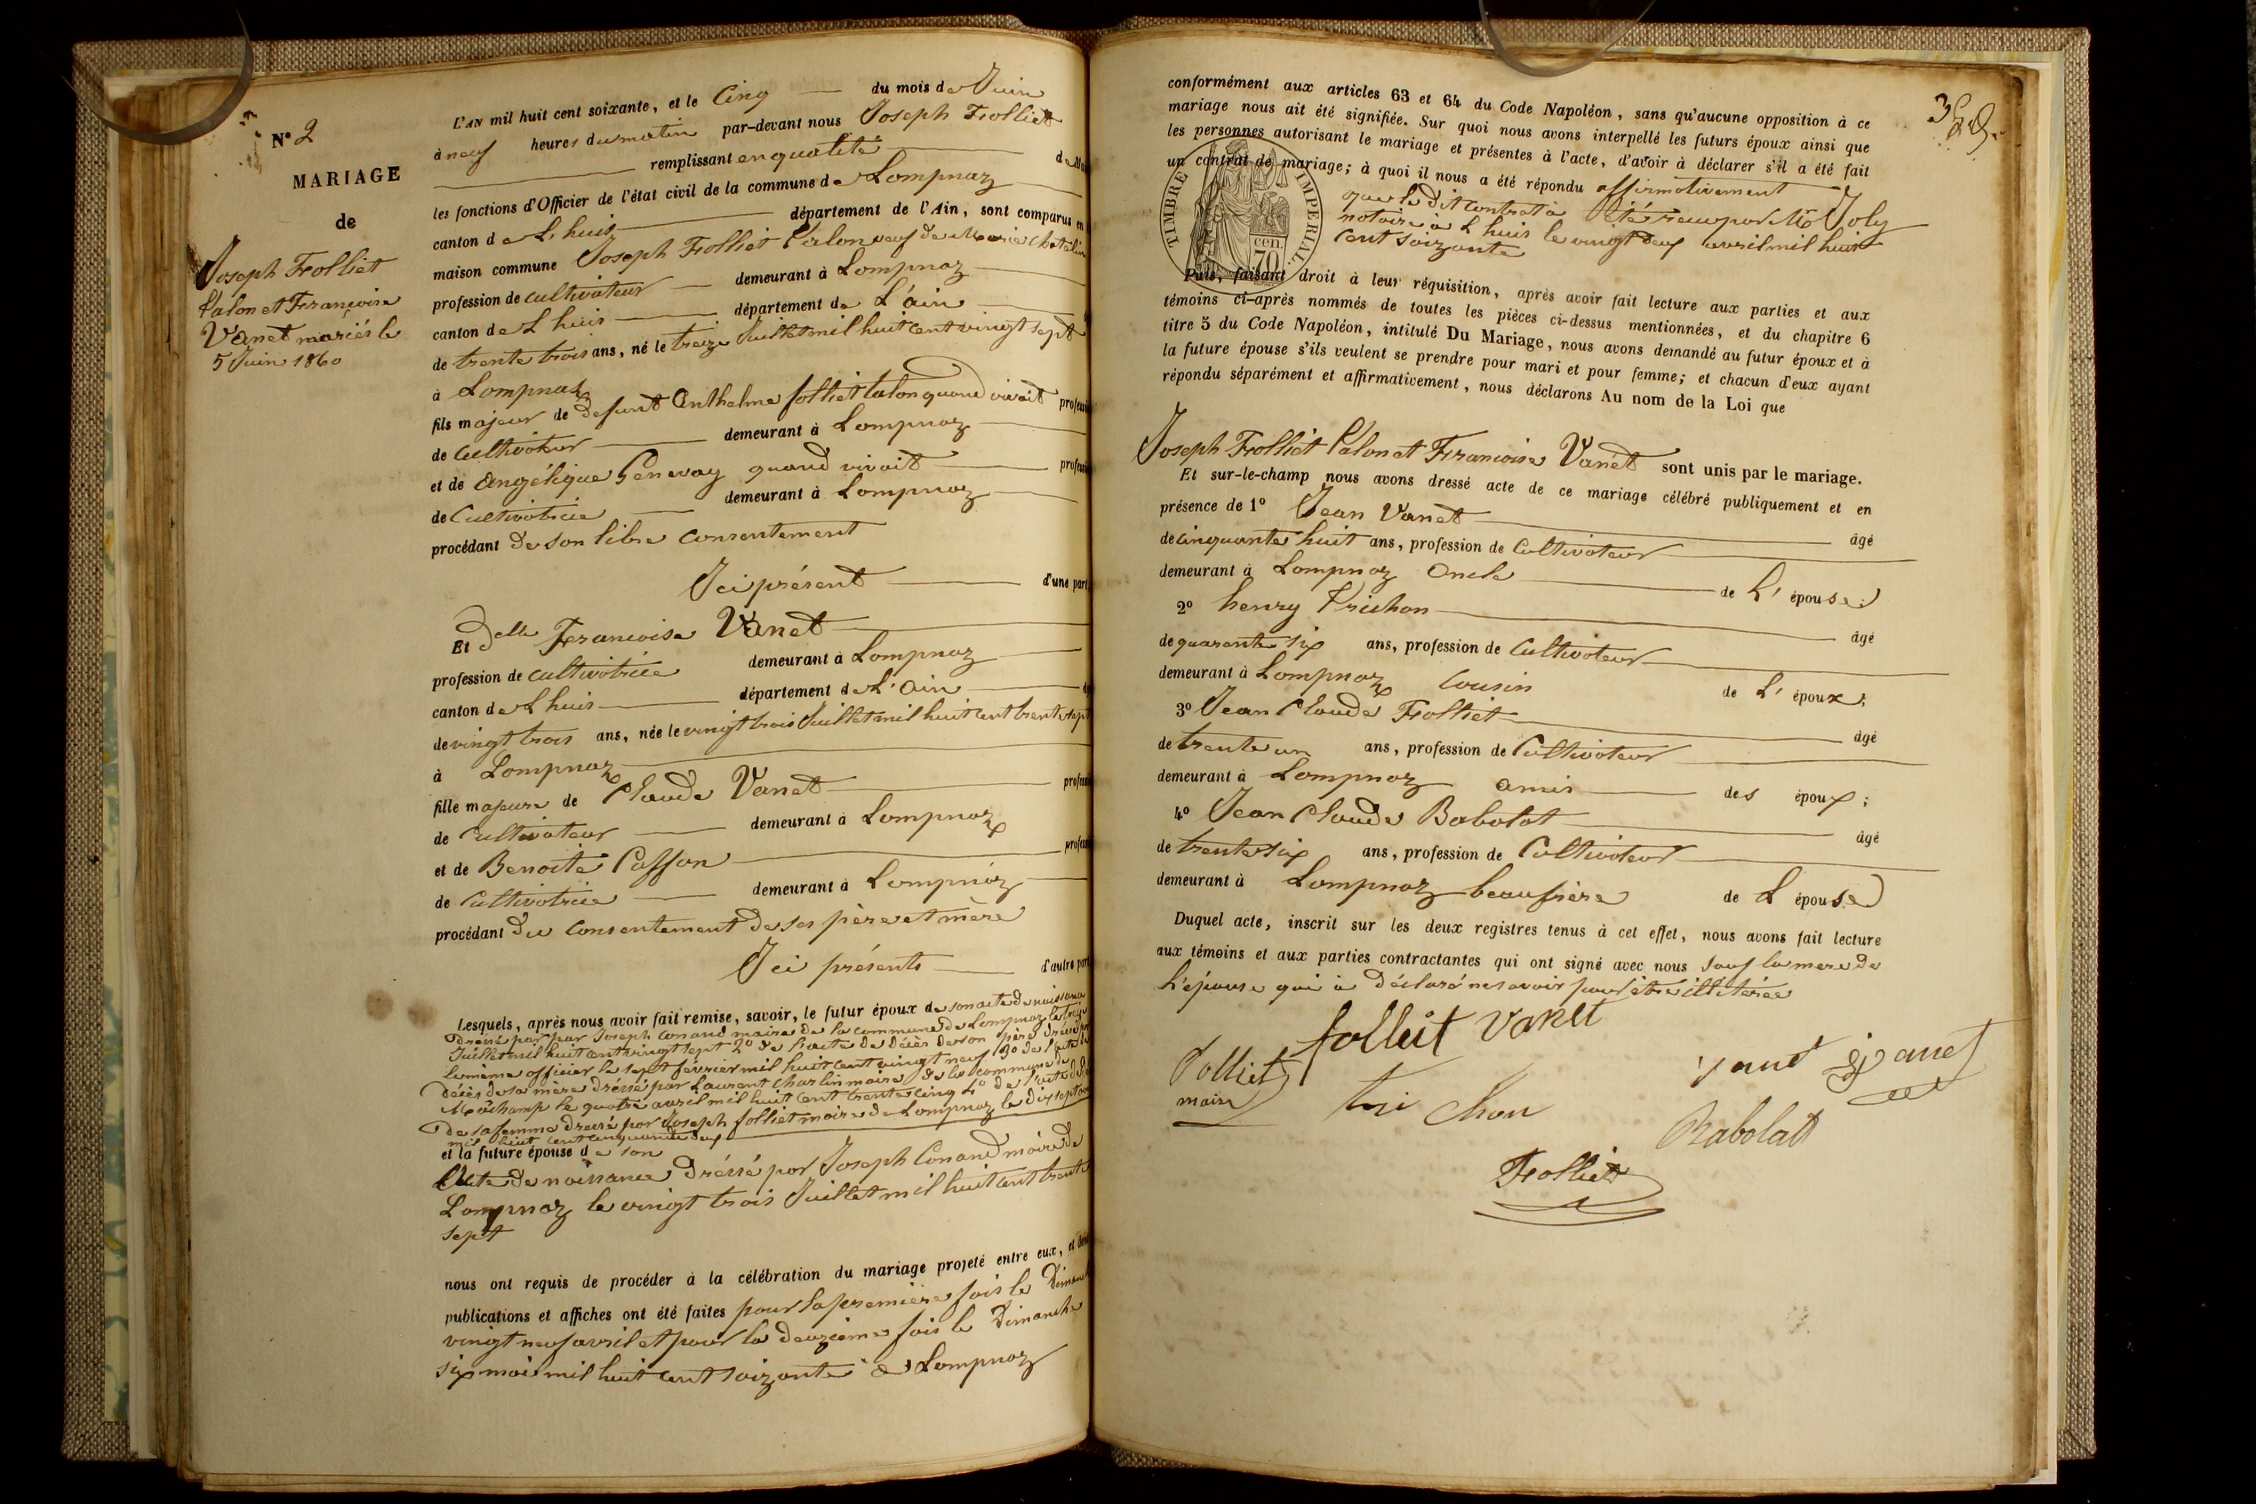 N° 2
MARIAGE
de
Joseph Frolliet
Talon et Françoise
Vanet mariés le
5 Juin 1860
L'AN mil huit cent soixante, et le Cinq du mois de Juin
à neuf heures du matin par-devant nous Joseph Frolliet
remplissant en qualité de
les fonctions d'Officier de l'état civil de la commune de Lompnaz
canton de L'huis département de l'Ain, sont comparus en
maison commune Joseph Frolliet Talon veuf de Marie Chatelin
profession de cultivateur demeurant à Lompnaz
canton de L huis département de L'ain
de trente trois ans, né le treize Juillet mil huit cent vingt sept
à Lompnaz
fils majeur de défunt Anthelme folliet talon quand vivait
de Cultivateur demeurant à Lompnaz
et de Angélique Genevay quand vivait
de Cultivatrice demeurant à Lompnaz
procédant de son libre consentement
Ici présent d'une part
Et Delle Françoise Vanet
profession de cultivatrice demeurant à Lompnaz
canton de L huis département de L'Ain
de vingt trois ans, née le vingt trois Juillet mil huit cent trente sept
à Lompnaz
fille majeure de Claude Vanet
de Cultivateur demeurant à Lompnaz
et de Benoite Casson
de Cultivatrice demeurant à Lompnaz
procédant du consentement de ses père et mère
Ici présents d'autre part
Lesquels, après nous avoir fait remise, savoir, le futur époux de son acte de naissance
dressé par par Joseph Conand maire de la commune de Lompnaz le treize
Juillet mil huit cent vingt sept 2° de l'acte de décès de son père dressé par
le même officier le sept février mil huit cent vingt neuf 3° de l'acte de
décès de sa mère dressé par Laurent Charlin maire de la commune de
le quatre avril mil huit cent trente cinq 4° de l'acte de
de sa femme dressé par Joseph folliet maire de Lompnaz le dix sept
mil huit cent cinquante neuf
et la future épouse de son
Acte de naissance dréssé par Joseph Conand maire de
Lompnaz le vingt trois Juillet mil huit cent trente
sept
nous ont requis de procéder à la célébration du mariage projeté entre eux, et
publications et affiches ont été faites pour la première fois le Dimanche
vingt neuf avril et pour la deuxième fois le Dimanche
six mai mil huit cent soixante à Lompnaz
conformément aux articles 63 et 64 du Code Napoléon, sans qu'aucune opposition à ce
mariage nous ait été signifiée. Sur quoi nous avons interpellé les futurs époux ainsi que
les personnes autorisant le mariage et présentes à l'acte, d'avoir à déclarer s'il a été fait
un contrat de mariage; à quoi il nous a été répondu affirmativement
que le dit contrat a été reçu par Me Joly
notaire à L huis le vingt neuf avril mil huit
cent soixante
TIMBRE IMPERIAL
70 cen.
Puis, faisant droit à leur réquisition, après avoir fait lecture aux parties et aux
témoins ci-après nommés de toutes les pièces ci-dessus mentionnées, et du chapitre 6
titre 5 du Code Napoléon, intitulé Du Mariage, nous avons demandé au futur époux et à
la future épouse s'ils veulent se prendre pour mari et pour femme; et chacun d'eux ayant
répondu séparément et affirmativement, nous déclarons Au nom de la Loi que
Joseph Frolliet Talon et Françoise Vanet sont unis par le mariage.
Et sur-le-champ nous avons dressé acte de ce mariage célébré publiquement et en
présence de 1° Jean Vanet âgé
de cinquante huit ans, profession de Cultivateur
demeurant à Lompnaz oncle de L' épouse;
2° henry Trichon âgé
de quarante six ans, profession de Cultivateur
demeurant à Lompnaz Cousin de L' époux;
3° Jean Claude Frolliet âgé
de trente un ans, profession de Cultivateur
demeurant à Lompnaz amis des époux;
4° Jean Claude Babolat âgé
de trente six ans, profession de Cultivateur
demeurant à Lompnaz beaufrère de L épouse
Duquel acte, inscrit sur les deux registres tenus à cet effet, nous avons fait lecture
aux témoins et aux parties contractantes qui ont signé avec nous sauf la mère de
L'épouse qui a déclaré ne savoir pour être illitérée
folleit vanet
Folliet
maire
tri chon
vanet
Vanet
Babolat
Frolliet